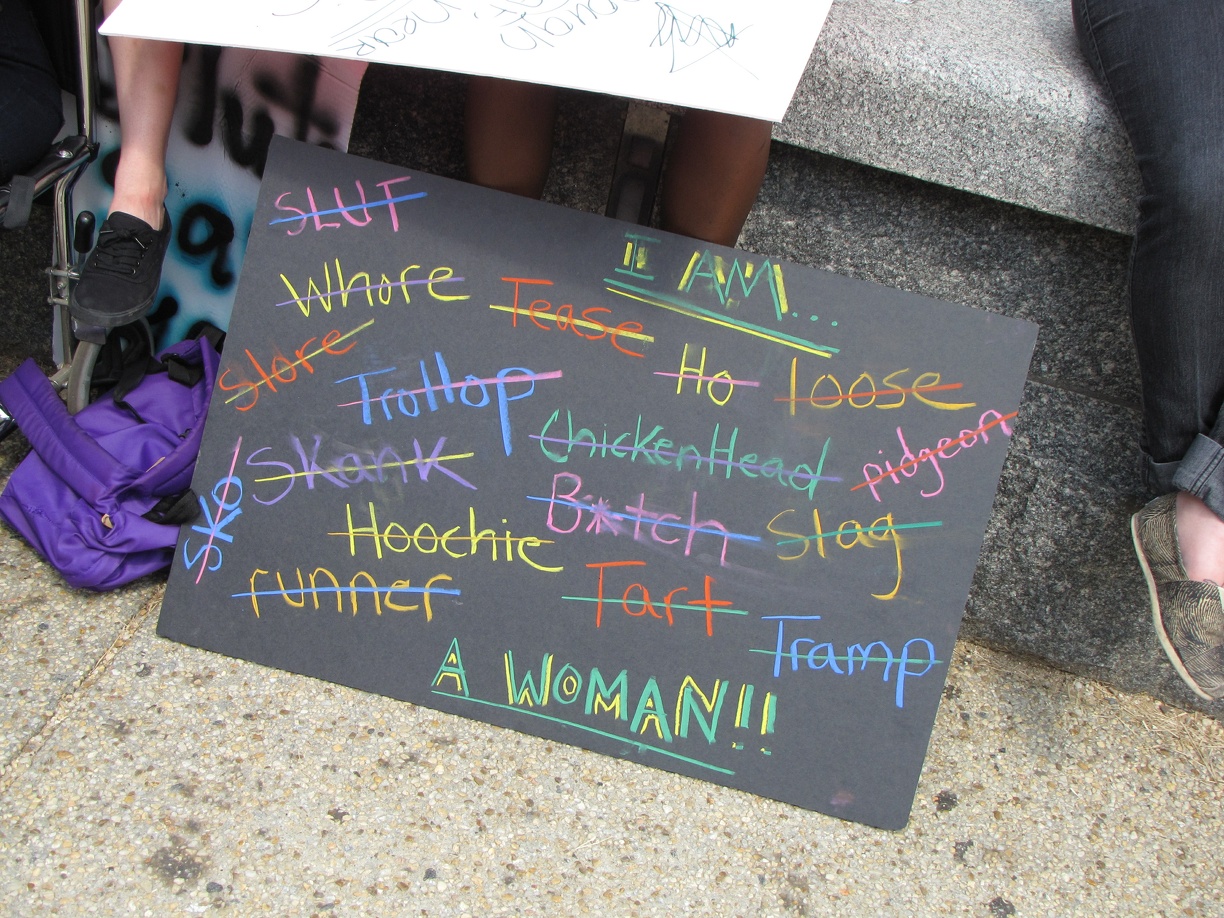 slut
SLUT
I AM...
Whore
Tease
Slore
Trollop
Ho
loose
Skank
ChickenHead
pidgeon
SKO
B*tch
Slag
Hoochie
runner
Tart
Tramp
A WOMAN!!